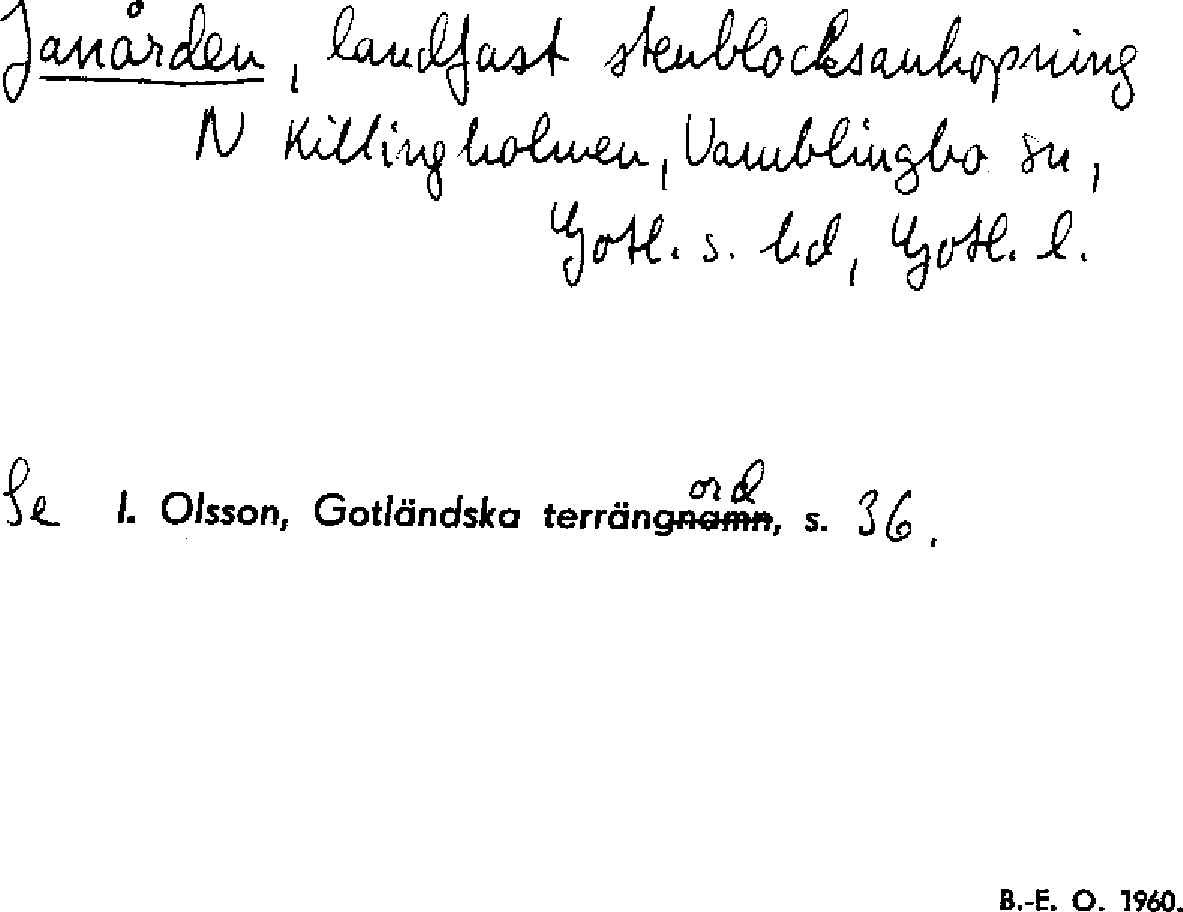 Janården, landfast stenblocksanhopning
N Killingholmen, Vamblingbo sn,
Gotl. s. hd, Gotl. l.
Se I. Olsson, Gotländska terrängnamn, s. 36.
ord
B.-E. O. 1960.